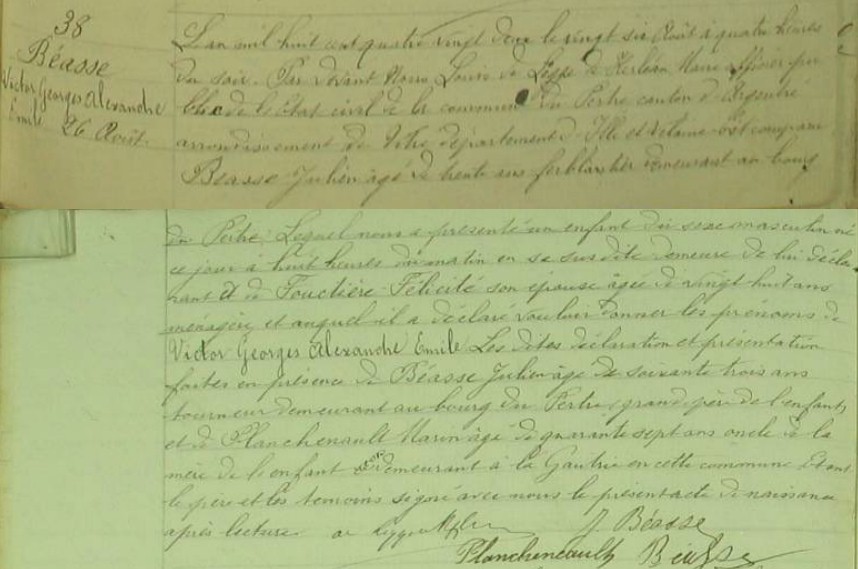 38
Béasse
Victor Georges Alexandre
Emile
26 Août.
L'an mil huit cent quatre vingt deux le vingt six Août à quatre heures
du soir. Par devant Nous Louis de Legge de Kerléan Maire officier pu
blic de l'Etat civil de la commune du Pertre canton d'Argentré
arrondissement de Vitré département d'Ille et Vilaine est comparu
Béasse Julien âgé de trente ans ferblantier demeurant au bourg
du Pertre. Lequel nous a présenté un enfant du sexe masculin né
ce jour à huit heures du matin en sa susdite demeure de lui décla
rant et de Fouctière Félicité son épouse âgée de vingt huit ans
ménagère et auquel il a déclaré vouloir donner les prénoms de
Victor Georges Alexandre Emile Les dites déclaration et présentation
faites en présence de Béasse Julien âgé de soixante trois ans
tourneur demeurant au bourg du Pertre, grand père de l'enfant,
et de Planchenault Marin âgé de quarante sept ans oncle de la
mère de l'enfant demeurant à la Gautrie en cette commune Et ont
le père et les témoins signé avec nous le présent acte de naissance
après lecture.
J Béasse
Planchenault Béasse